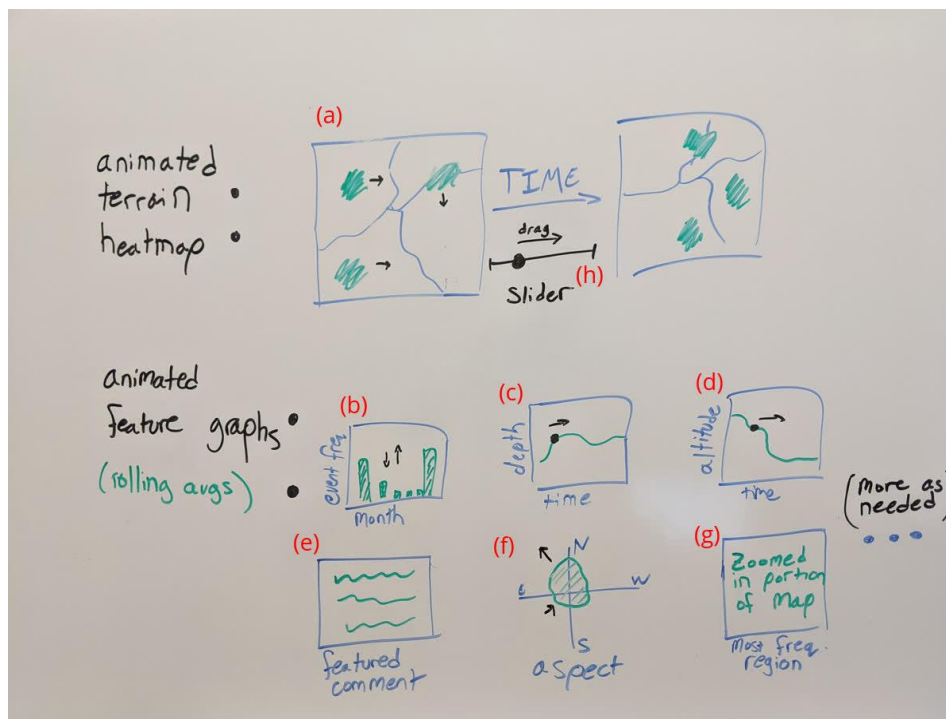 (a)
animated
terrain
heatmap
TIME
drag
(h)
Slider
animated
feature graphs
(rolling avgs)
(b)
event freq
month
(c)
depth
time
(d)
altitude
time
(more as
needed)
(e)
featured
comment
(f)
N
E
W
S
aspect
(g)
Zoomed
in portion
of Map
Most freq.
region